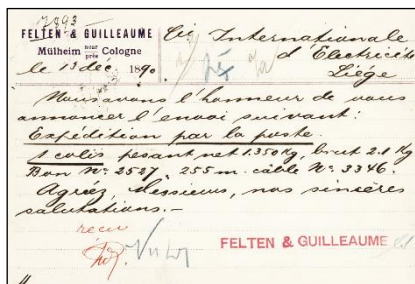 7893
FELTEN & GUILLEAUME
Mülheim sur près Cologne
le 13 déc. 1890
Cie Internationale
d'Electricité
Liége
Nous avons l'honneur de vous
annoncer l'envoi suivant:
Expédition par la poste.
1 colis pesant net 1.350 Kg, brut 2.1 Kg
Bon No. 2527, 255 m. câble No. 3346.
Agréez, Messieurs, nos sincères
salutations.—
reçu
FELTEN & GUILLEAUME